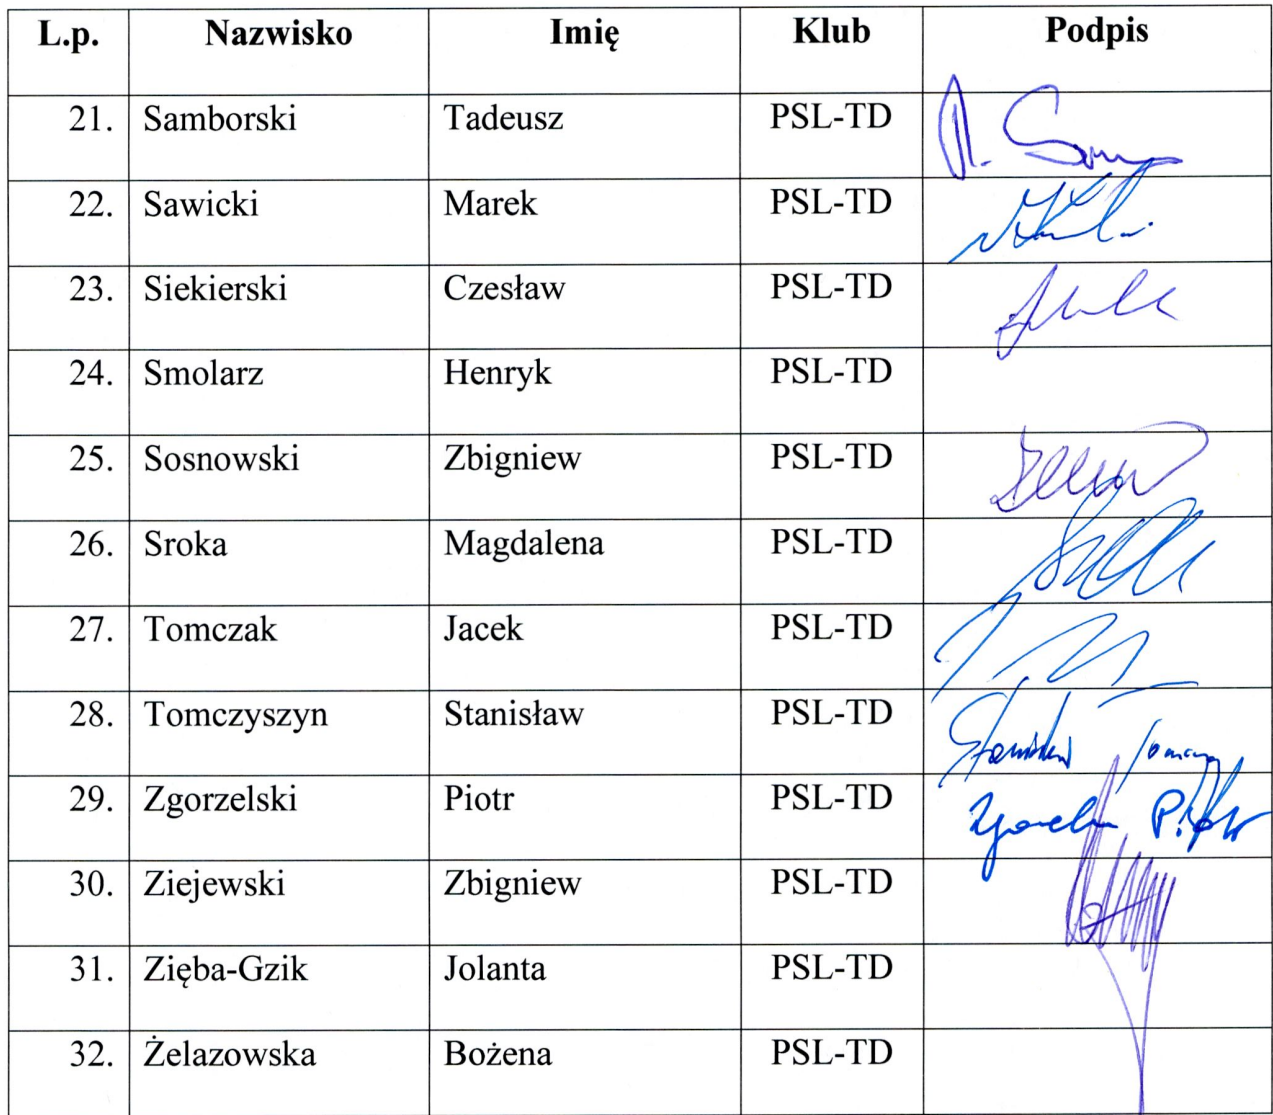 L.p. Nazwisko Imię Klub Podpis
21. Samborski Tadeusz PSL-TD
22. Sawicki Marek PSL-TD
23. Siekierski Czesław PSL-TD
24. Smolarz Henryk PSL-TD
25. Sosnowski Zbigniew PSL-TD
26. Sroka Magdalena PSL-TD
27. Tomczak Jacek PSL-TD
28. Tomczyszyn Stanisław PSL-TD
29. Zgorzelski Piotr PSL-TD
30. Ziejewski Zbigniew PSL-TD
31. Zięba-Gzik Jolanta PSL-TD
32. Żelazowska Bożena PSL-TD